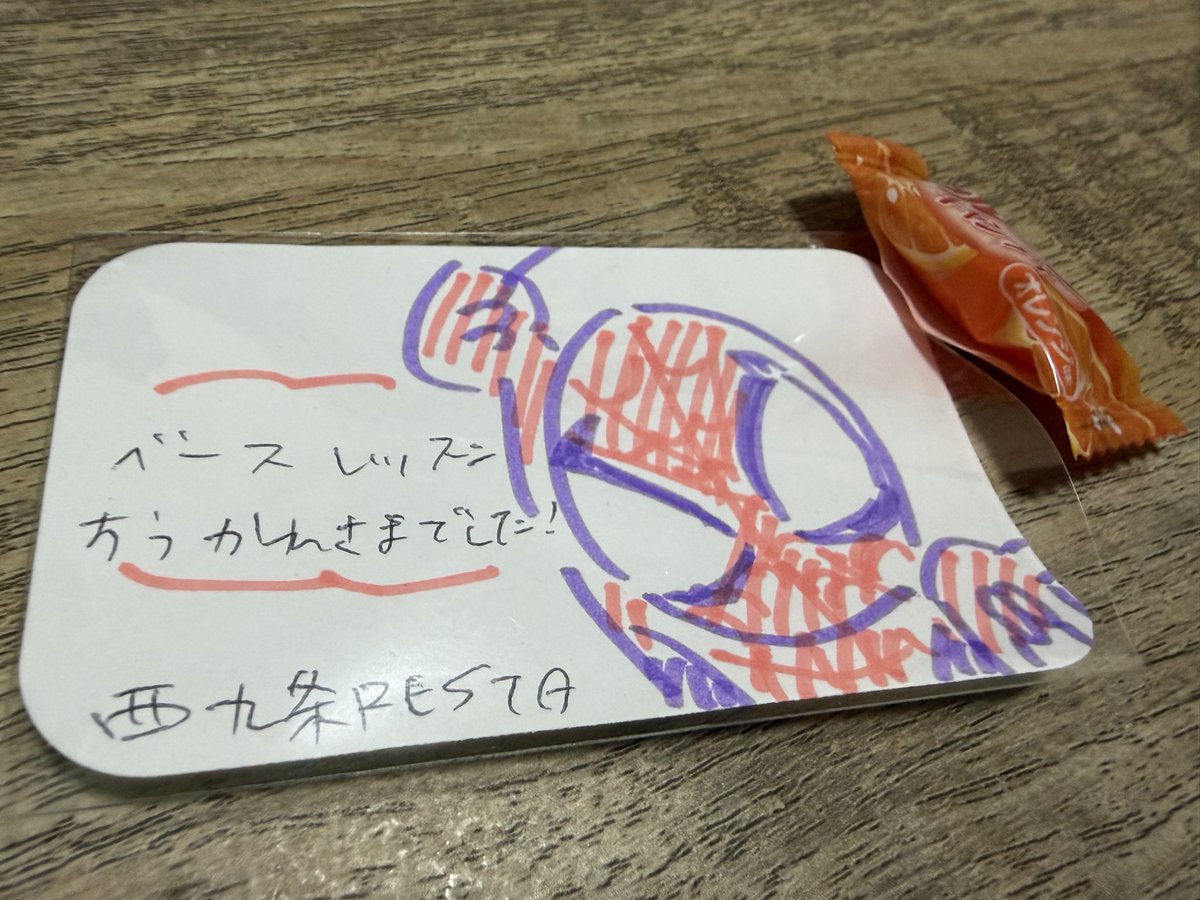 ベース レッスン
おつかれさまでした!
西九条RESTA
オレンジ